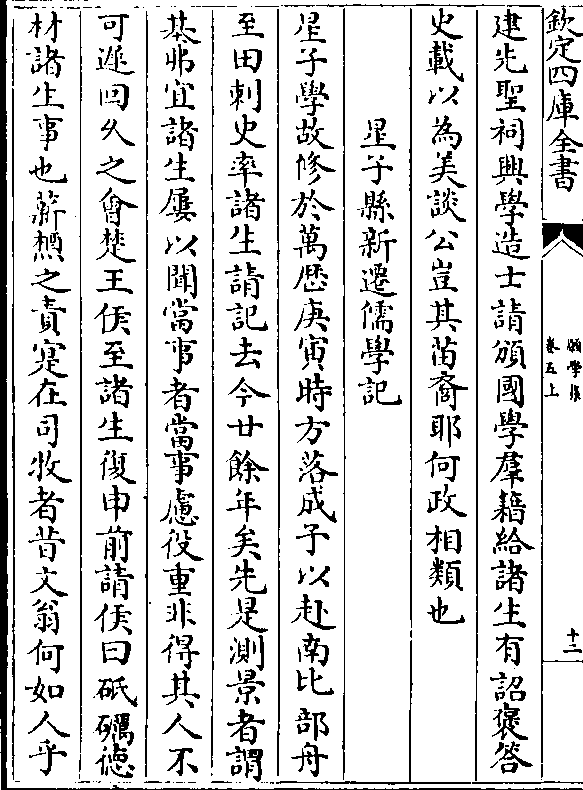 欽定四庫全書
願學集
卷五上
十二
建先聖祠興學造士請頒國學羣籍給諸生有詔褒答
史載以為美談公豈其苗裔耶何政相類也
星子縣新遷儒學記
星子學故修於萬歷庚寅時方落成予以赴南比部舟
至田刺史率諸生請記去今廿餘年矣先是測景者謂
基弗宜諸生屢以聞當事者當事慮役重非得其人不
可遲回久之會楚王侯至諸生復申前請侯曰砥礪德
材諸生事也薪槱之責寔在司牧者昔文翁何如人乎